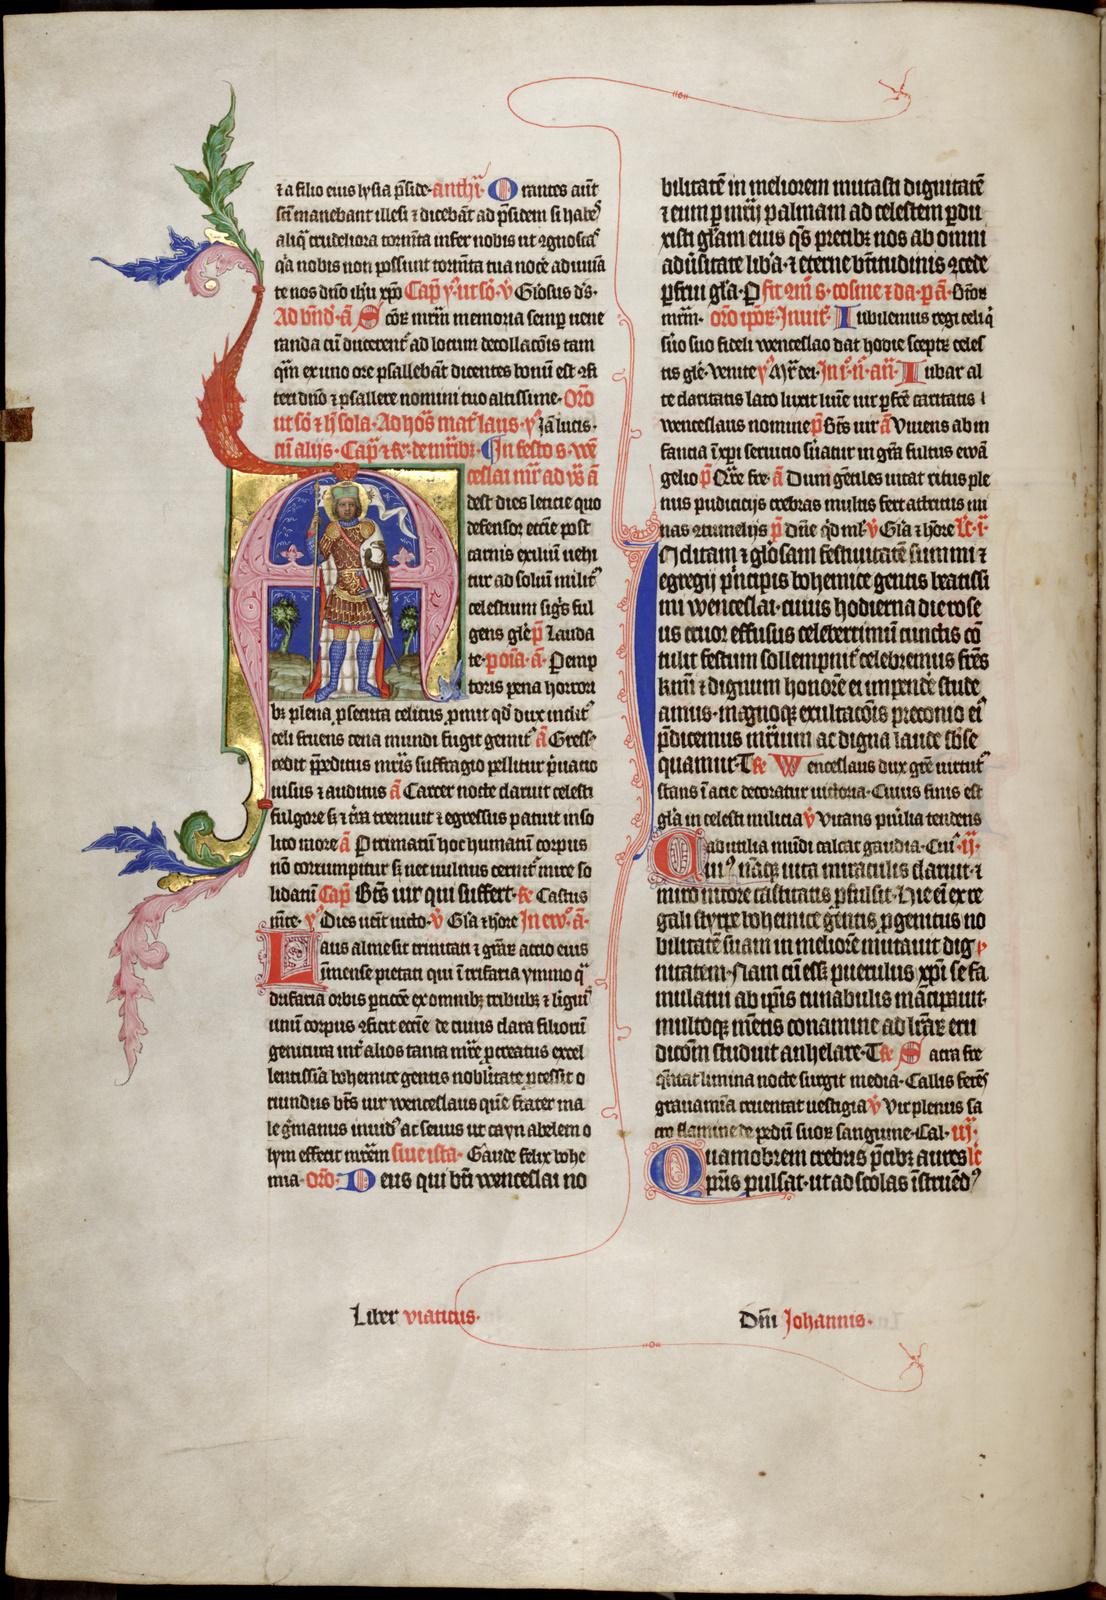 ⁊ a filio eius lysia p̄side· anthī Orantes aūt
sc̄i manebant illesi ⁊ dicebāt ad p̄sidem si habeꝰ
aliq̄ crudeliora tormn̄ta infer nobis ut ꝯgnoscaꝰ
q̄a nobis non possunt torm̄ta tua nocē̄ adiuua
te nos dn̄o ih̄u xp̄o Cap̄ yꝰ ut sō· v̄ Gl̄osus ds̄·
Ad bn̄d· ā Scōꝝ mr̄m memoria semꝑ uene
randa cū ducerent ad locum decollacōis tam
q̄m ex uno ore psallebāt dicentes bonū est ꝯfi
teri dn̄o ⁊ psallere nomini tuo altissime· Orō
ut sō ⁊ h̄ sola· Ad hōs mat̄ laus· yꝰ Iā lucis·
cū alijs· Cap̄ ⁊ r̄e· de mr̄ibꝫ· In festo s· wē
ceslai mr̄ ad vs̄ ā
dest dies leticie quo
defensor ecc̄ie post
carnis exiliū uehi
tur ad soluī militꝰ
celestium sig̃s ful
gens glē p̄ Lauda
te· p oīa· ā· Pemp
toris pena horrori
bꝫ plena ꝑsecuta celitus p̄mit qd̄ dux inclitꝰ
celi fruens cena mundi fugit gemitꝰ ā Gress̄
cedit p̄peditus mr̄is suffragio pellitur p̄uacio
uisus ⁊ auditus ā Carcer nocte claruit celesti
fulgore sꝫ ⁊ t̄ra tremuit ⁊ egressus patuit inso
lito more ā Ptimatum̄ hoc humanū corpus
nō corrumpitur sꝫ nec uulnus cernitꝰ mire so
lidatū Cap̄ Bt̄s uir qui suffert· r̄e Castus
mēte· yꝰ Dies uēit uicto· v̄ Glīa ⁊ hōore In ewō· ā·
Laus alme sit trinitati ⁊ gr̄aꝝ actio eius
īmense pietati qui ī trifaria ymmo q̄
drifaria orbis ꝑticōe ex omnibꝫ tribubꝫ ⁊ liguiꝰ
unū corpus ꝯficit ecc̄ie de cuius clara filiorū
genitura int̄ alios tanta mr̄e ꝓcreatus excel
lentissīa bohemice gentis nobilitate ꝓcessit o
riundus bt̄s uir wenceslaus quē frater ma
le ḡmanus inuidꝰ ac seuus ut cayn abelem o
lym effecit mr̄em siue ista· Gaude felix bohe
mia· orō· Deus qui bt̄i wenceslai no
bilitatē in meliorem mutasti dignitatē
⁊ eum ꝑ mr̄ij palmam ad celestem ꝑdu
xisti gl̄am eius q̄s precibꝫ nos ab omni
adūsitate libā· ⁊ eterne bt̄itudinis ꝯcede
ꝑfrui gl̄a· P
mr̄m· orō ip̄oꝝ· Inuit̄· Iubilemus regi celi q̄
suō suo fideli wenceslao dat hodie sceptꝝ celes
tis glē· venite yꝰ Mr̄ dei· In iº· nº· an̄· Iubar al
te claritatis lato luxit lumē uir ꝑfc̄e caritatis
wenceslaus nomine p̄ Bt̄s uir ā Viuens ab in
fancia ī xp̄i seruicio s̄uatur in gr̄a fultus ewā
gelio p̄ Qr̄e fre· ā Dum gētiles uitat ritus ple
nus pudicicijs crebras multus fert attritus mi
nas ꝯtumelijs p̄ Dn̄e qd̄ ml̄· v̄ Glīa ⁊ hōore lc̄· i·
Nclitam ⁊ gl̄osam festiuitatē summi ⁊
egregij p̄ncipis bohemice gentis beatissi
mi wenceslai· cuius hodierna die rose
us cruor effusus celeberrimū cunctis cō
tulit festum sollempnit̄ celebremus fr̄es
kr̄mi ⁊ dignum honorē ei impendē stude
amus· magnoqꝫ exultacōis preconio eū
p̄dicemus mr̄ium ac digna laude sb̄se
quamur· T r̄e Wenceslaus dux gr̄e uirtutꝰ
stans ī acie decoratur uictoria· Cuius finis est
gl̄a in celesti milicia v̄ Vitans puīlia tendens
ad utilia mūdi calcat gaudia· Cuī· ij·
Cuiꝰ nāqꝫ uita miraculis claruit· ⁊
miro nitore castitatis p̄fulsit· Hic eī ex re
gali styrpe bohemice gētis ꝓgenitus no
bilitatē suam in meliorē mutauit dig
nitatem· Nam cū ess̄ puerulus xp̄i se fa
mulatui ab ip̄is cunabulis mācipauit·
multoqꝫ mētis conamine ad lr̄aꝝ eru
dicōm studuit anhelare· T r̄e Sacra fre
q̄ntat limina nocte surgit media· Callis ferēs
grauamīa cruentat uestigia v̄ Vir plenus sa
cro flamine de pedū suoꝝ sanguine· Cal· iij·
Quamobrem crebris p̄cibꝫ aures lc̄
p̄ris pulsat· ut ad scolas īstruēdꝰ
Liber viaticus·
Dn̄i Johannis·